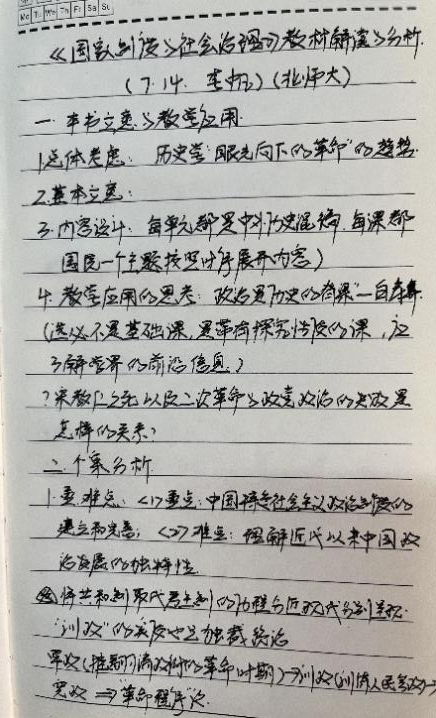 Mo Tu We Th Fr Sa Su
《国家制度与社会治理》教材解读与分析.
(7.14. 李帆)(北师大)
一.本书立意与教学应用.
1.总体考虑: 历史学"眼光向下的革命"的趋势.
2.基本立意:
3.内容设计: 每单元都是中外历史混编,每课都
围绕一个主题按照时序展开内容)
4.教学应用的思考: 政治是历史的脊梁—白寿彝
(选必不是基础课,是带有探究性质的课,应
了解学界的前沿信息)
?宋教仁之死以及二次革命与政党政治的失败是
怎样的关系?
二.个案分析.
1.重难点: <1>重点:中国特色社会主义政治制度的
建立和完善; <2>难点:理解近代以来中国政
治发展的独特性.
将共和制取代君主制的历程分近代
"训政"的实质也是独裁统治
军政(推翻清政府的革命时期)→训政(训练人民参政)→
宪政 ⇒"革命程序"论.